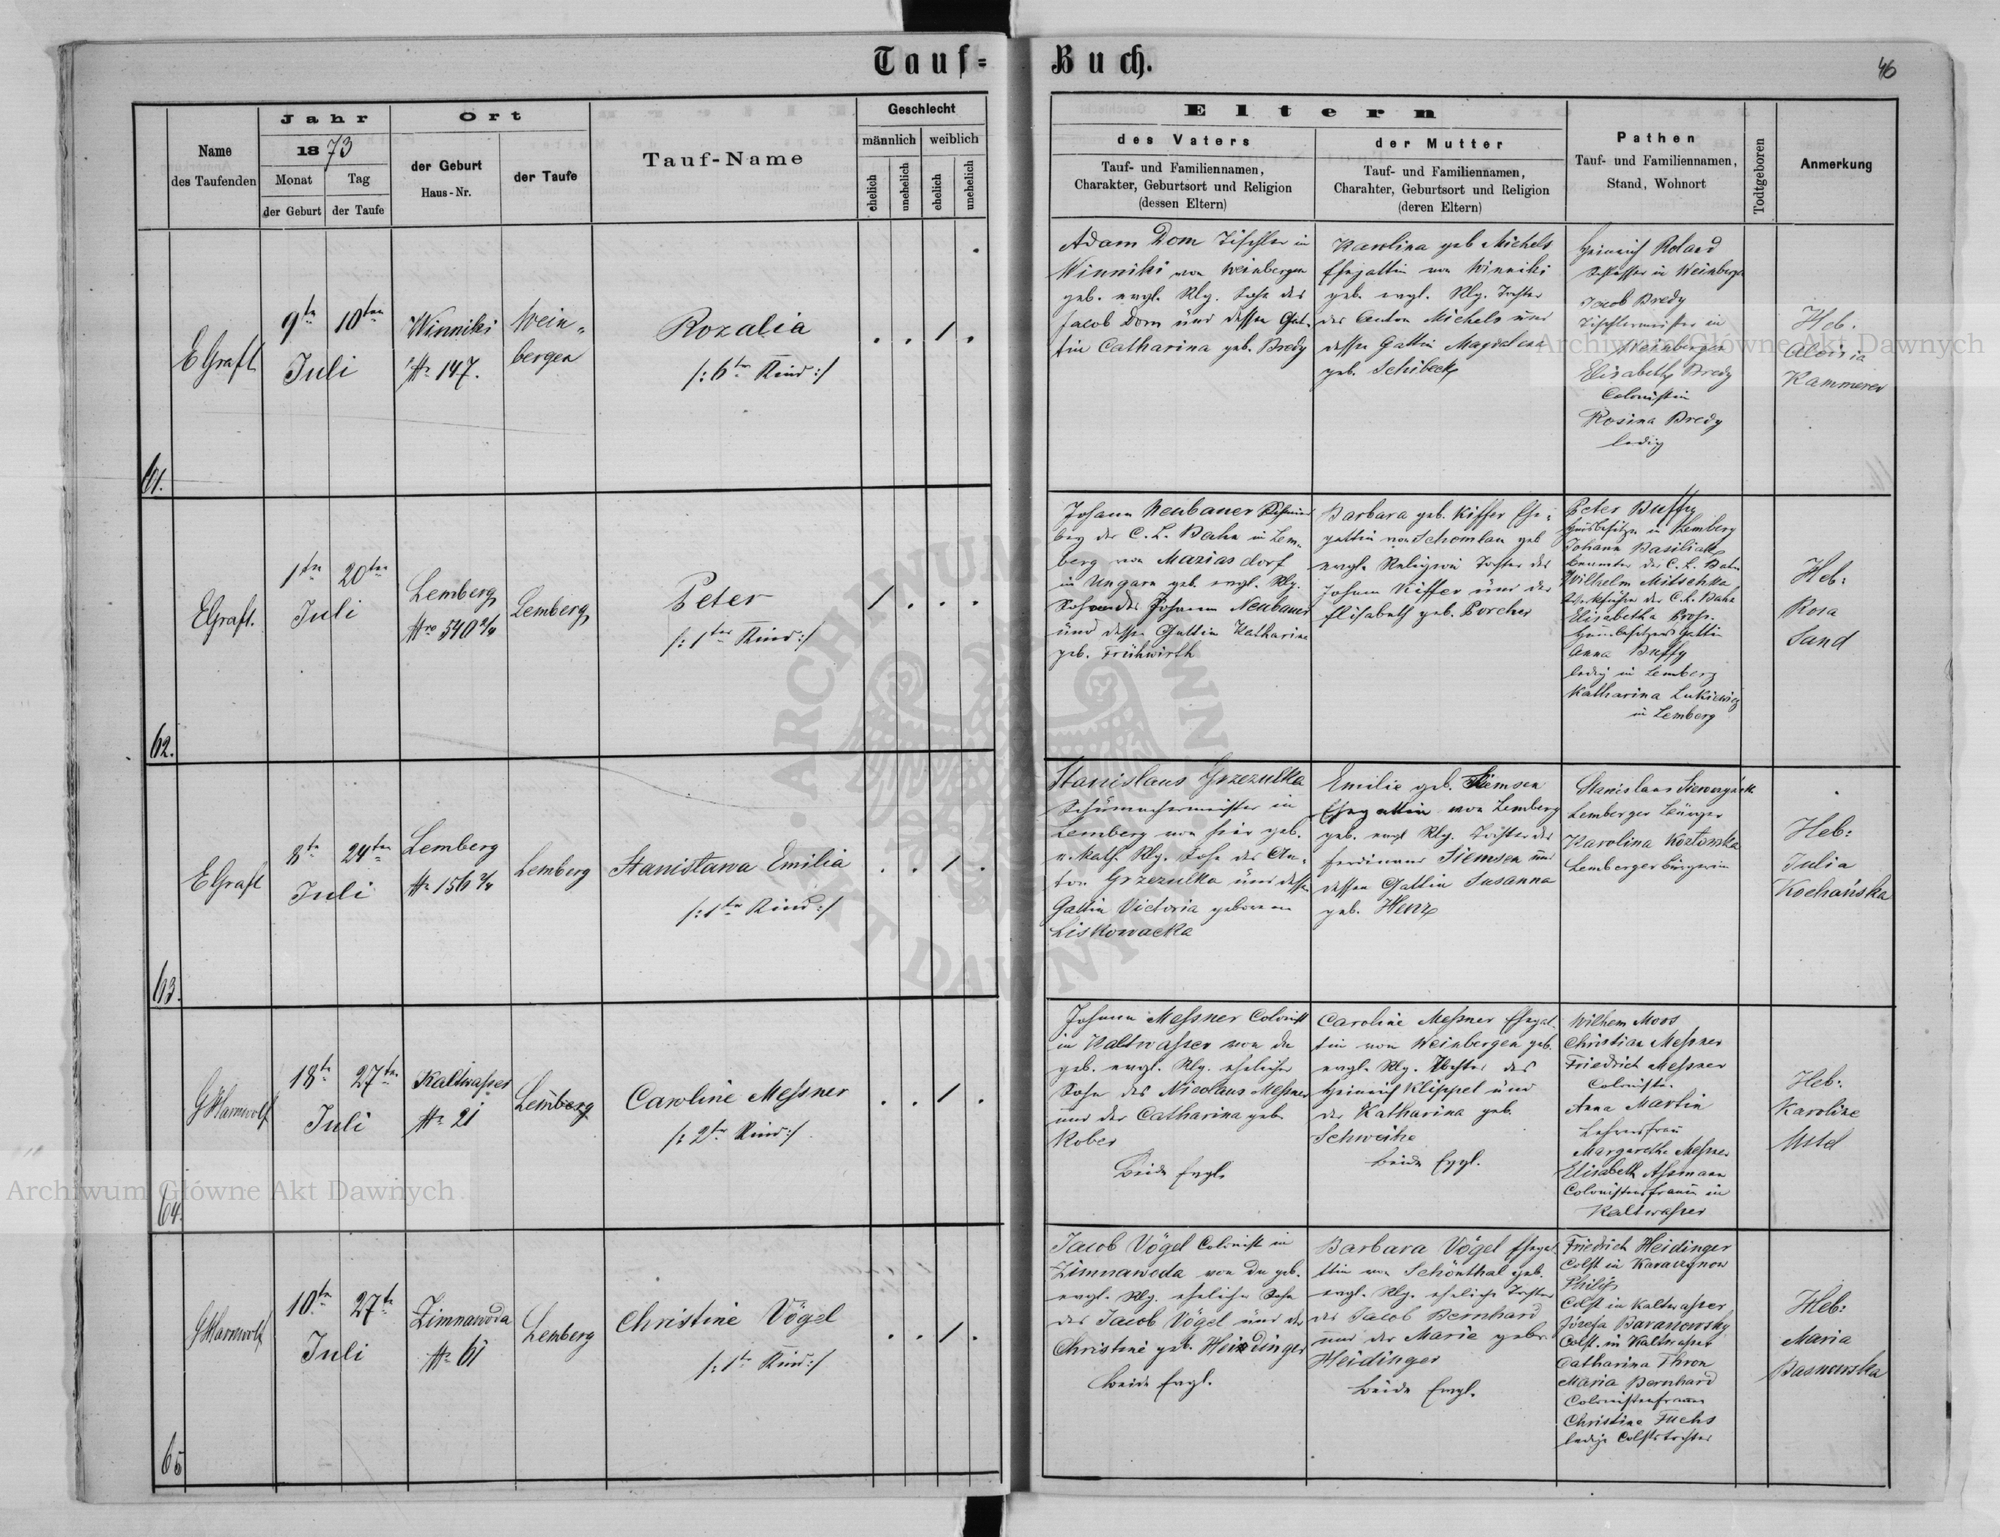 Tauf=
Buch.
46
Name
des Taufenden
Jahr
1873
Monat
Tag
der Geburt
der Taufe
Ort
der Geburt
Haus-Nr.
der Taufe
Tauf-Name
Geschlecht
männlich
weiblich
ehelich
unehelich
ehelich
unehelich
Eltern
des Vaters
Tauf- und Familiennamen,
Charakter, Geburtsort und Religion
(dessen Eltern)
der Mutter
Tauf- und Familiennamen,
Charahter, Geburtsort und Religion
(deren Eltern)
Pathen
Tauf- und Familiennamen,
Stand, Wohnort
Todtgeboren
Anmerkung
61.
EGraft
9ten
10ten
Juli
Winniki
Nr 147.
Wein=
bergen
Rozalia
/: 6tes Kind :/
Adam Dom Tischler in
Winniki von Weinbergen
geb. evgl. Rlg. Sohn des
Jacob Dom und dessen Gat-
tin Catharina geb. Bredy
Karolina geb Michels
Ehegattin von Winniki
geb. evgl. Rlg. Tochter
des Anton Michels und
dessen Gattin Magdalena
geb. Schibeck
Heinrich Roland
Schlosser in Weinbergen
Jacob Bredy
Tischlermeister in
Weinbergen
Elisabeth Bredy
Colonistin
Rosina Bredy
ledig
Heb:
Aloisia
Kammerer
62.
EGraft.
1ten
20ten
Juli
Lemberg
Nro 540 2/4
Lemberg
Peter
/: 1tes Kind :/
Johann Neubauer
der C. L. Bahn in Lem-
berg von Mariasdorf
in Ungarn geb. evgl. Rlg.
Sohn des Johann Neubauer
und dessen Gattin Katharina
geb. Frühwirth
Barbara geb. Kiffer Ehe-
gattin von Schomlau geb
evgl. Religion Tochter des
Johann Kiffer und der
Elisabeth geb. Porcher
Peter Buffy
Hausbesitzer in Lemberg
Johann Basiliak
Beamter der C. L. Bahn
Wilhelm Mitschka
der C. L. Bahn
Elisabetha Prosp.
Hausbesitzers Gattin
Anna Buffy
ledig in Lemberg
Katharina Lukiewicz
in Lemberg
Heb:
Rosa
Sand
63.
EGraft
8ten
24ten
Juli
Lemberg
Nr 156 2/4
Lemberg
Stanisława Emilia
/: 1tes Kind :/
Stanislaus Grzezulka
Schumachermeister in
Lemberg von hier geb.
r. kath. Rlg. Sohn des An-
ton Grzezulka und dessen
Gattin Victoria geborene
Liskowacka
Emilie geb. Siemsen
Ehegattin von Lemberg
geb. evgl Rlg. Tochter des
Ferdinand Siemsen und
dessen Gattin Susanna
geb. Henz
Stanislaus
Lemberger Bürger
Karolina Kozłowska
Lemberger Bürgerin
Heb:
Julia
Kochańska
64.
GHarwolf
18ten
27ten
Juli
Kaltwasser
Nr 21
Lemberg
Caroline Messner
/: 2tes Kind :/
Johann Messner Colonist
in Kaltwasser von da
geb. evgl. Rlg. ehelicher
Sohn des Nicolaus Messner
und der Catharina geb.
Kober
Beide Evgl.
Caroline Messner Ehegat-
tin von Weinbergen geb.
evgl. Rlg. Tochter des
Heinrich Klippel und
der Katharina geb.
Schweihe
beide Evgl.
Wilhem Moos
Christian Messner
Friedrich Messner
Coloniste.
Anna Martin
Lehrersfrau
Margarethe Messner
Elisabeth Assmann
Colonistensfrauen in
Kaltwasser
Heb:
Karoline
Usld
65
GHarwolf
10ten
27ten
Juli
Zimnawoda
Nr 61
Lemberg
Christine Vögel
/: 1tes Kind :/
Jacob Vögel Colonist in
Zimnaweda von da geb.
evgl. Rlg. ehelicher Sohn
des Jacob Vögel und der
Christine geb. Heidinger
beide Evgl.
Barbara Vögel Ehega-
ttin von Schönthal geb.
evgl. Rlg. eheliche Tochter
des Jacob Bernhard
und der Marie geb.
Heidinger
beide Evgl.
Friedrich Heidinger
Colst in
Philip
Colst in Kaltwasser
Józefa Baranowsky
Colst. in Kaltwasser
Catharina Thron
Maria Bernhard
Colonistenfrauen
Christine Fuchs
ledige Colsts tochter
Heb:
Maria
Basnowska
Archiwum Główne Akt Dawnych
Archiwum Główne Akt Dawnych
ARCHIWUM GŁÓWNE AKT DAWNYCH